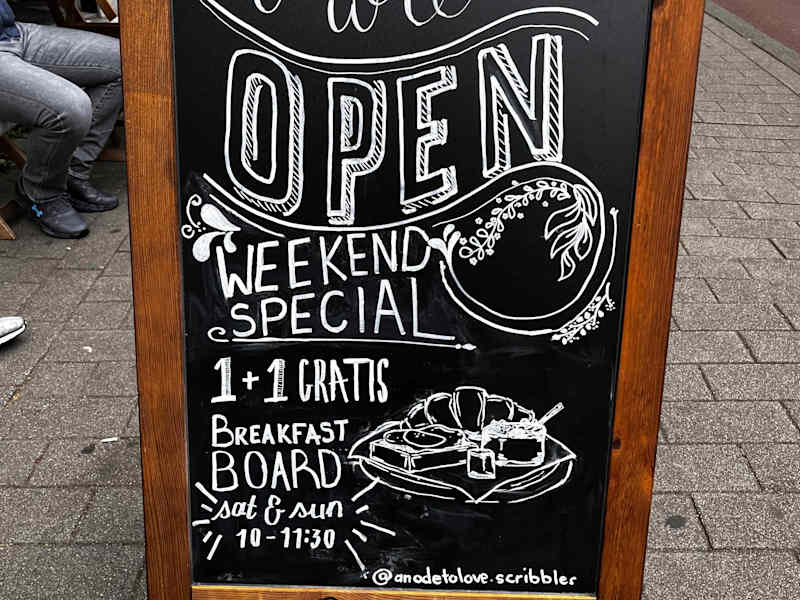 are
OPEN
WEEKEND
SPECIAL
1+1 GRATIS
BREAKFAST
BOARD
sat & sun
10-11:30
@anodetolove.scribbler